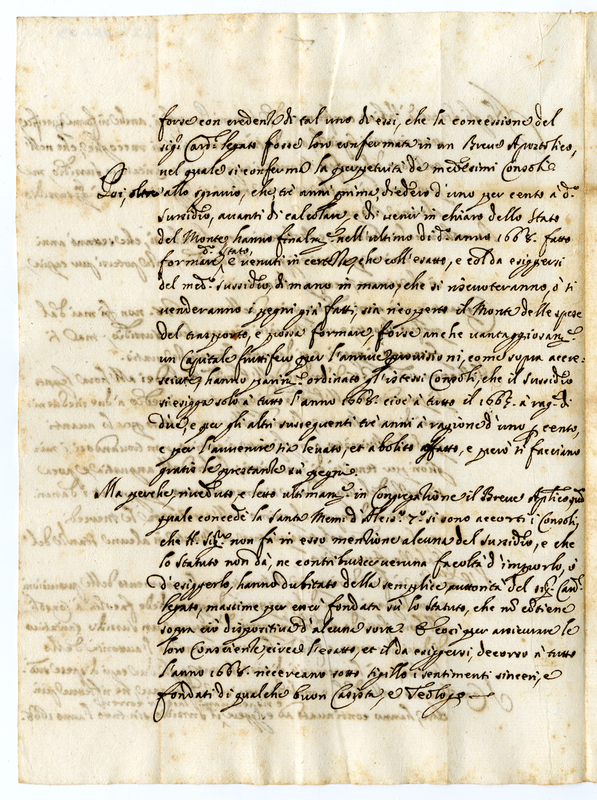 forse con credenza di tal uno di essi, che la concessione del
sig.r Card.l legato fosse loro confermata in un Breve Apostolico,
nel quale si confermò la perpetuità de medesimi Consoli.
Poi, oltre allo sgravio, che tre anni prima diedero d'uno per cento à d.o
sussidio, avanti di calcolare, e di venir in chiaro dello stato
del Monte, hanno finalm.te nell'ultimo di d.o anno 1668. fatto
d.o stato,
formare, e venuti in certezza, che coll'esatto, e col da esiggersi
del med.o sussidio, di mano in mano che si riscuoteranno, ò si
venderanno i pegni già fatti, sia rispento il Monte delle spese
del trasporto, e possa formare, forse anche vantaggiosam.te
un Capitale fruttifero per l'annue provisioni, come sopra accre=
sciute, hanno parim.te ordinato gl'istessi Consoli, che il sussidio
si esigga solo à tutto l'anno 1668. cioè à tutto il 1665. à rag.e di
due, e per gli altri susseguenti tre anni à ragione d'uno p cento,
e per l'avvenire sia levato, et abolito affatto, e però si facciano
gratis le prestanze sù pegni.
Ma perche, riveduto, e letto ultimam.te in Congregatione il Breve Aplico,
quale concedè la santa Mem.a d'Aless.o 7.o si sono accorti i Consoli,
che S. S.tà non fà in esso mentione alcuna del sussidio, e che
lo statuto non dà, ne contribuisce veruna facoltà d'imporlo, ò
d'esiggerlo, hanno dubitato della semplice auttorità del sig.r Card.l
legato, massime per esser fondata sù lo statuto, che nõ contiene
sopra ciò dispositiva d'alcuna sorte. Et ecco per assicurare le
loro Conscienze circa l'esatto, et il da esiggersi, decorso à tutto
l'anno 1668. ricercano sotto sigillo i sentimenti sinceri, e
fondati di qualche buon Casista, e Teologo